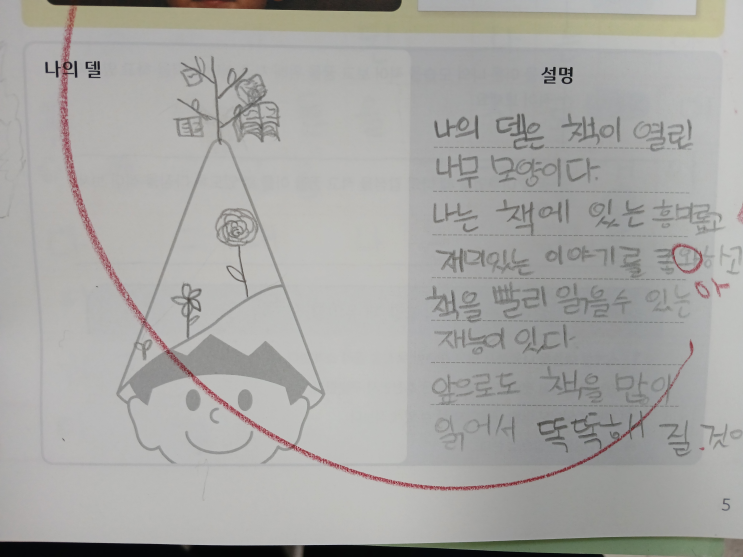 나의 델
설명
나의 델은 책이 열린
나무 모양이다.
나는 책에 있는 흥미롭고
재미있는 이야기를 좋와하고
아
책을 빨리 읽을수 있는
재능이 있다.
앞으로도 책을 많이
읽어서 똑똑해 질 것이
5